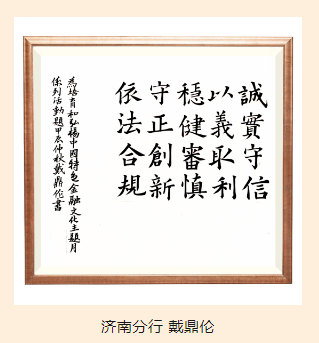 誠實守信
以義取利
穩健審慎
守正創新
依法合規
為培育和弘揚中國特色金融文化主題月
係列活動題甲辰仲秋戴鼎倫書
济南分行 戴鼎伦